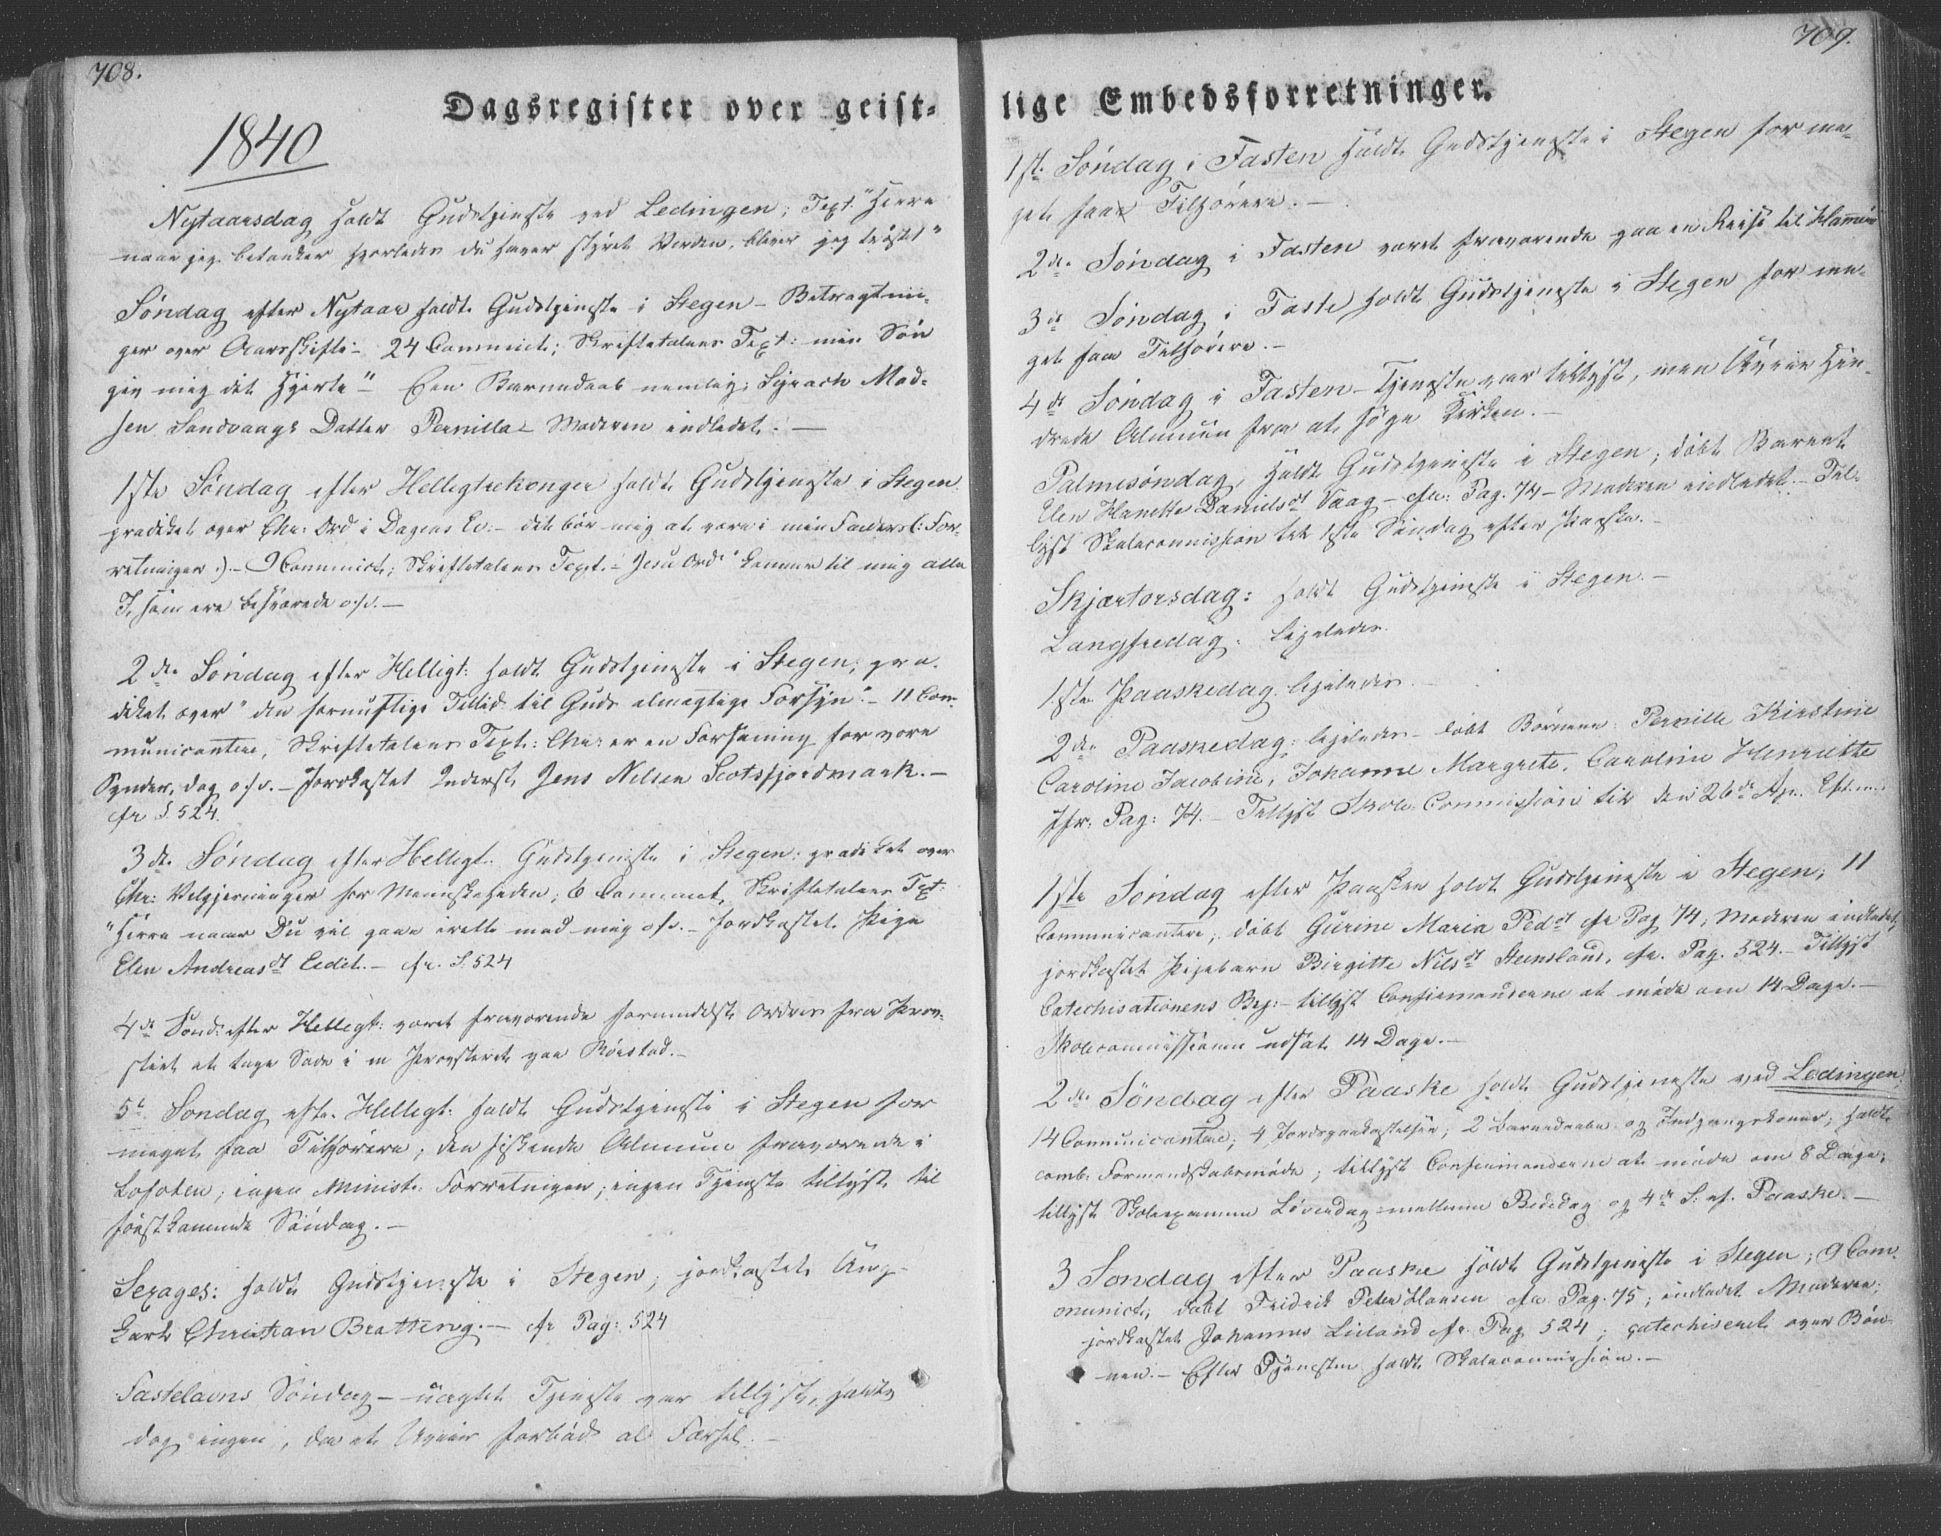 708.
Dagsregister over geist-
1840
Nytaarsdag holdt Gudstjeneste ved Lødingen; Text: "Herre
naar jeg betænker hvorledes du haver styret Verden, bliver jeg trøstet"
Søndag efter Nytaar holdt Gudstjeneste i Stegen - Betragtnin-
ger over Aarsskifte - 24 Communict; Skriftetalens Text: min Søn
giv mig dit Hjerte" - Een Barnedaab nemlig: Sÿrach Mad-
sen Sandvaags Datter Pernilla - Moderen indledet. -
1ste Søndag efter Helligtrekonger holdt Gudstjeneste i Stegen
prædiket over Chr: Ord i Dagens Ev: - det bør mig at være i min Faders (: For-
retninger :). - 9 Communict; Skriftetalens Text. - Jesu Ord" kommer til mig alle
I, som ere besværede o.s.v. -
2den Søndag efter Helligt: holdt Gudstjeneste i Stegen; præ-
diket over" den fornuftige Tillid til Guds almægtige Forsyn" - 11 Com-
municantere, Skriftetalens Text: Chr: er en Forsoning for vore
Synder, dog o.s.v. - Jordkastet Inderst Jens Nilsen Scotsfjordmark. -
cfr S. 524.
3die Søndag efter Helligt. Gudstjeneste i Stegen: prædiket over
Chr: Velgjerninger for Menneskeheden; 6 Communict, Skriftetalens Txt:
"Herre naar Du vil gaae irette med mig o.s.v. - Jordkastet Pige
Elen Andreasdt Ledit. - cfr. S. 524
4de Sønd: efter Helligt: været fraværende formedelst Ordre fra Prov-
stiet at tage Sæde i en Provsteret paa Rørstad. -
5te Søndag efter Helligt: holdt Gudstjeneste i Stegen for
meget faa Tilhørere; den fiskende Almue fraværende i
Lofoten; ingen Minist: Forretninger; ingen Tjeneste tillyst til
førstkommende Søndag. -
Sexages: holdt Gudstjeneste i Stegen; jordkastet Ung-
karl Christian Bratteng. - cfr Pag: 524
Fastelavns Søndag - uagtet Tjeneste var tillyst, holdtes
dog ingen, da et Uveir forbød al Færsel. -
709.
lige Embedsforretninger.
1ste Søndag i Fasten holdt Gudstjeneste i Stegen for me-
get faae Tilhørere. -
2den Søndag i Fasten været fraværende paa en Reise til Hammerø
3die Søndag i Faste holdt Gudstjeneste i Stegen for me-
get faae Tilhørere. -
4de Søndag i Fasten - Tjeneste var tillyst, men Uveir hin-
drede Almuen fra at søge Kirken. -
Palmesøndag, holdt Gudstjeneste i Stegen; døbt Barnet
Elen Hanekke Danielsdt Vaag - cfr: Pag. 74 - Moderen indledet. - Til-
lyst Skolecommission til 1ste Søndag efter Paaske. -
Skjærtorsdag: holdt Gudstjeneste i Stegen. -
Langfredag: ligeledes.
1ste Paaskedag. ligeledes. -
2den Paaskedag: ligeledes - døbt Børnene: Pernille Kirstine
Caroline Jacobine, Johanne Margrete, Caroline Henriette
cfr. Pag: 74. - Tillyst Skole Commission til den 26de Apr. Efterm.
1ste Søndag efter Paasken holdt Gudstjeneste i Stegen; 11
Communicantere; døbt Gurine Maria Pedt cfr Pag 74; Moderen indledet;
jordkastet Pigebarn Birgitte Nilsdt Steensland, cfr. Pag. 524. - Tillyst
Catechisationens Beg: - tillyst Confirmanderne at møde om 14 Dage. -
Skolecommissionen udsat 14 Dage. -
2den Søndag efter Paaske holdt Gudstjeneste ved Lødingen
14 Communicantere; 4 Jordpaakastelser; 2 Barnedaabe og Indgangskoner; holdt
comb. Formandskabsmøde; tillyst Confirmanderne at møde om 8 Dage;
tillyst Skoleexamen Løverdag mellem Bededag og 4de S. ef. Paaske. -
3 Søndag efter Paaske holdt Gudstjeneste i Stegen; 9 Com-
munict; døbt Fridrik Peter Hansen cfr Pag. 75; indledet Moderen;
jordkastet Johannes Lieland cfr. Pag 524; catechiseret over Bøn-
nen. - Efter Tjenesten holdt Skolecommission. -